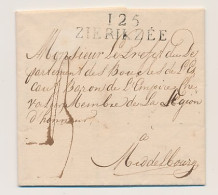 125
ZIERIKZÉE
Monsieur Le Prefet du De
partement des Bouches de L'Es
caut Baron de L'Empire Che
valier Membre de La Légion
d'honneur
à
Middelbourg